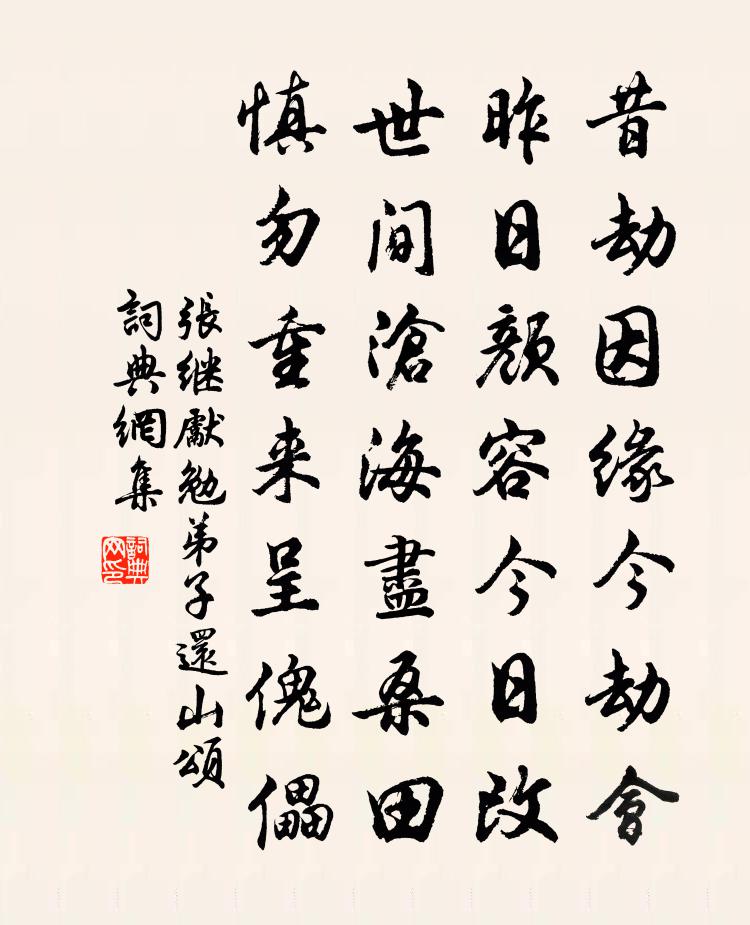 昔劫因緣今劫會
昨日顏容今日改
世間滄海盡桑田
慎勿重来呈傀儡
張继獻勉弟子還山頌
詞典網集
詞典網印